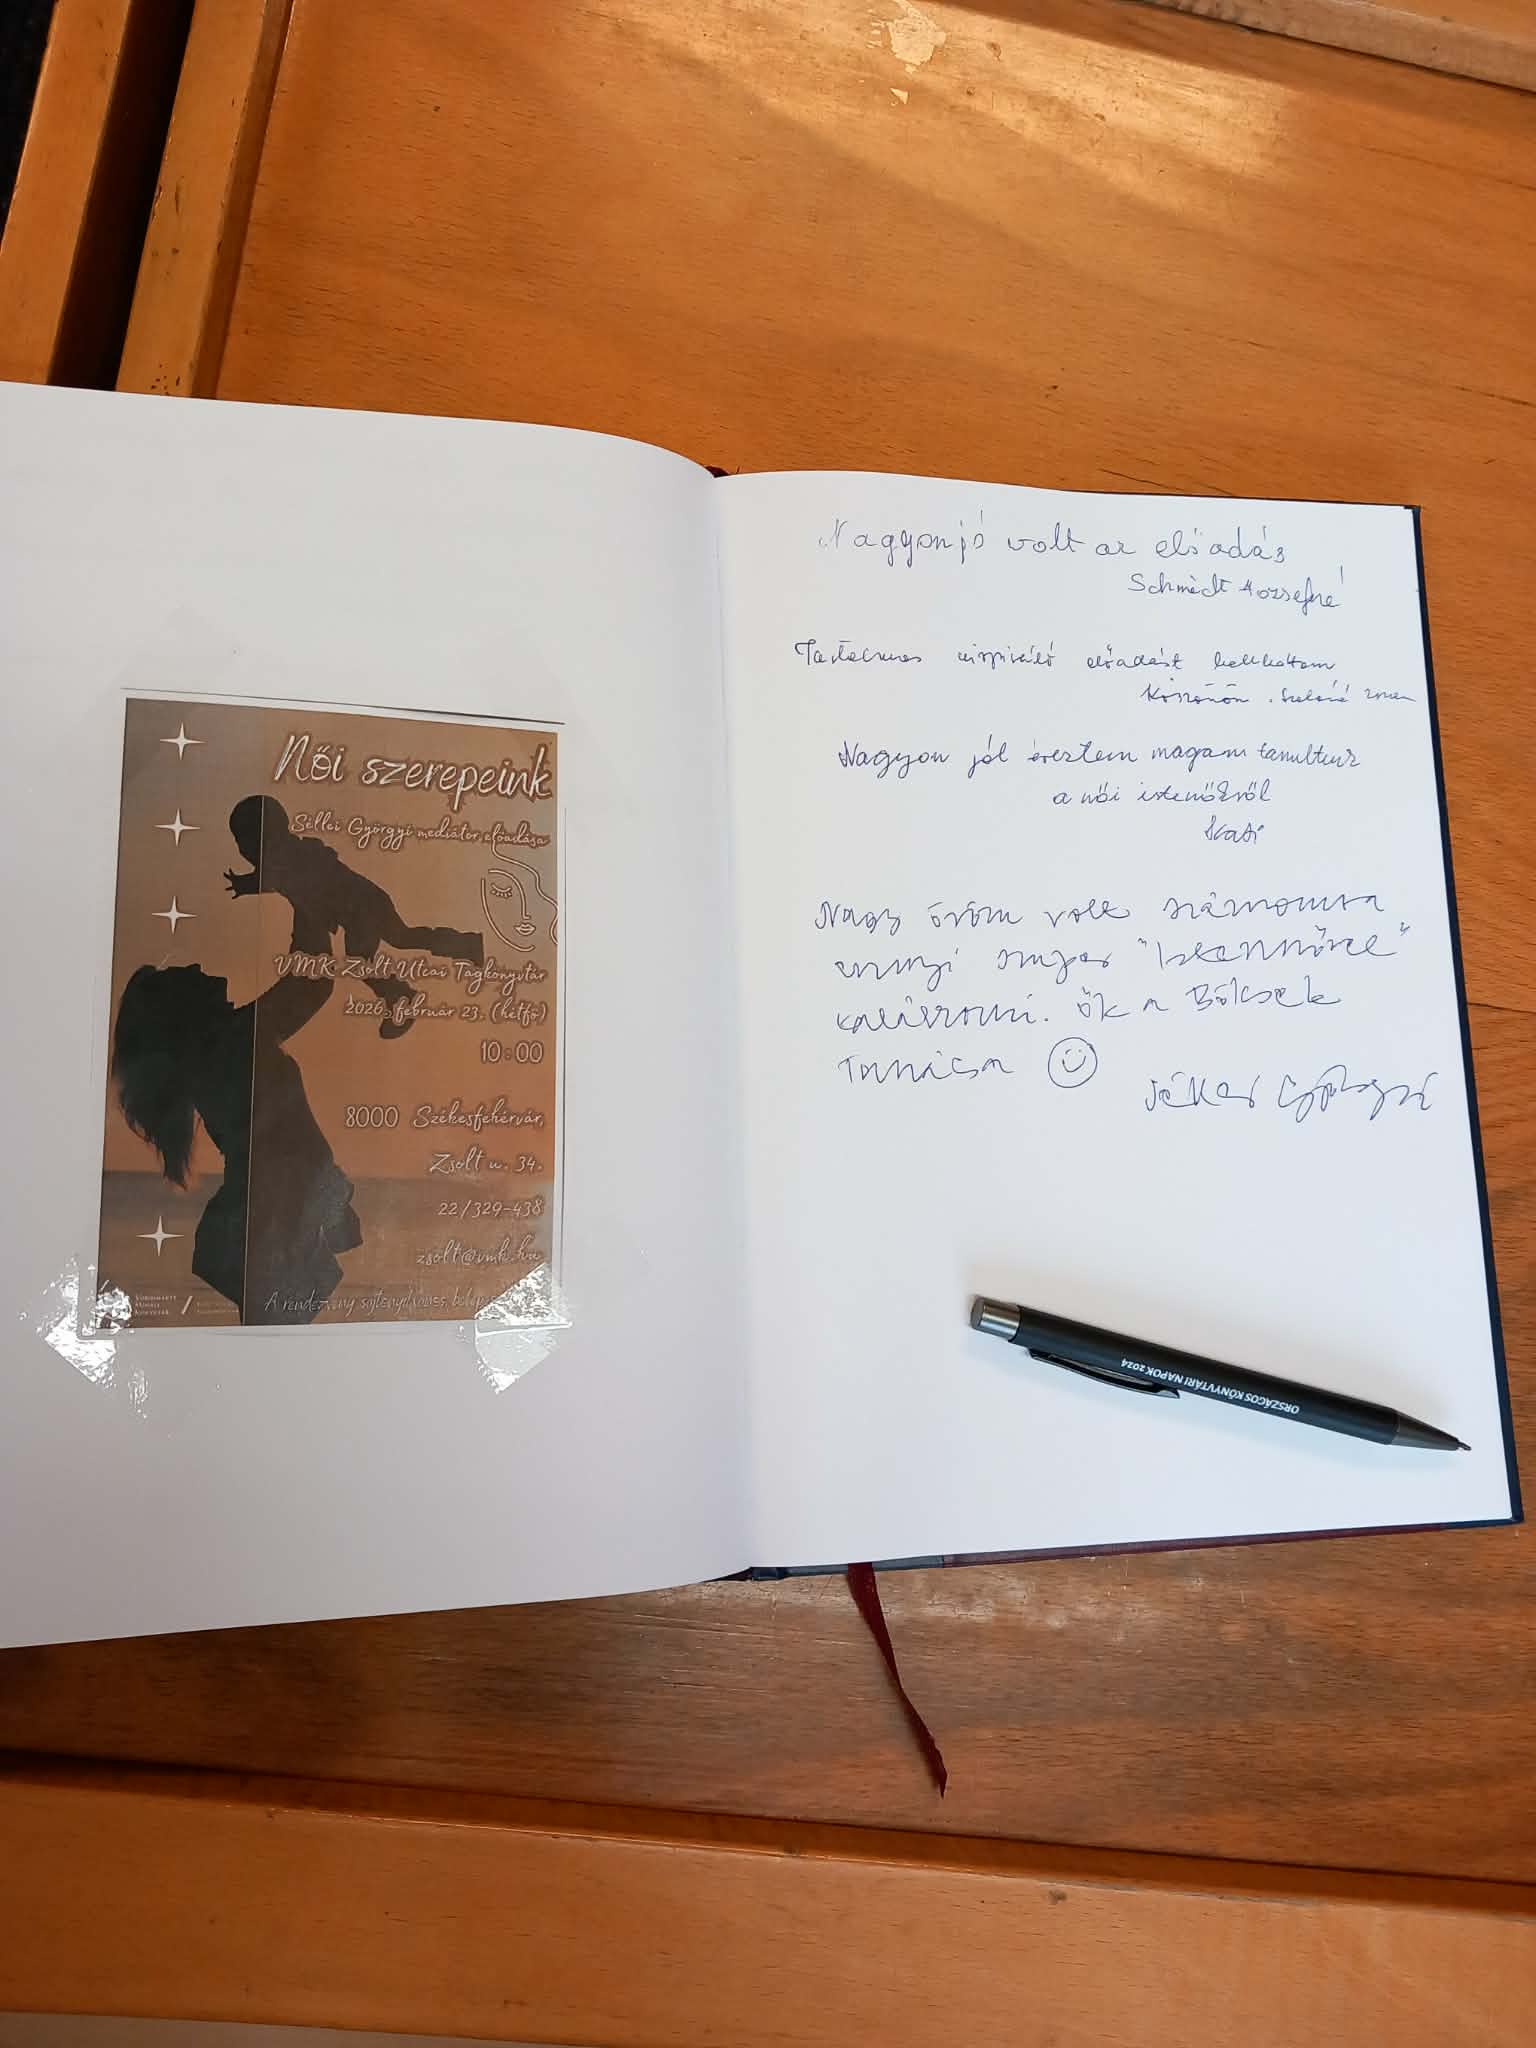 Női szerepeink
Séllei Györgyi mediátor előadása
VMK Zsolt Utcai Tagkönyvtár
2026. február 23. (hétfő)
10:00
8000 Székesfehérvár,
Zsolt u. 34.
22/329-438
zsolt@vmk.hu
A rendezvény sajtónyilvános,
VÖRÖSMARTY
MIHÁLY
KÖNYVTÁR
Nagyon jó volt az előadás
Schmidt Józsefné
Tartalmas inspiráló előadást hallhattam
Köszönöm
Nagyon jól éreztem magam tanultunk
a női istenőkről
Kati
Nagy öröm volt számomra
ennyi szuper "Istennővel"
találkozni. Ők a Bölcsek
Tanácsa
Séllei Györgyi
ORSZÁGOS KÖNYVTÁRI NAPOK 2024